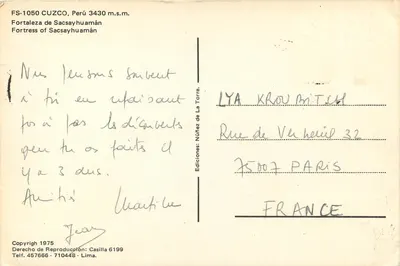 FS-1050 CUZCO, Perú 3430 m.s.m.
Fortaleza de Sacsayhuamán
Fortress of Sacsayhuamán
Nous pensons souvent
à toi en refaisant
pas à pas les découvertes
que tu as faites il
y a 3 ans.
Amitié
Martine
Jean
Ediciones: Núñez de La Torre.
LYA KROUBITCH
Rue de Verneuil 32
75007 PARIS
FRANCE
Copyrigh 1975
Derecho de Reproducción: Casilla 6199
Telf. 467666 - 710448 - Lima.